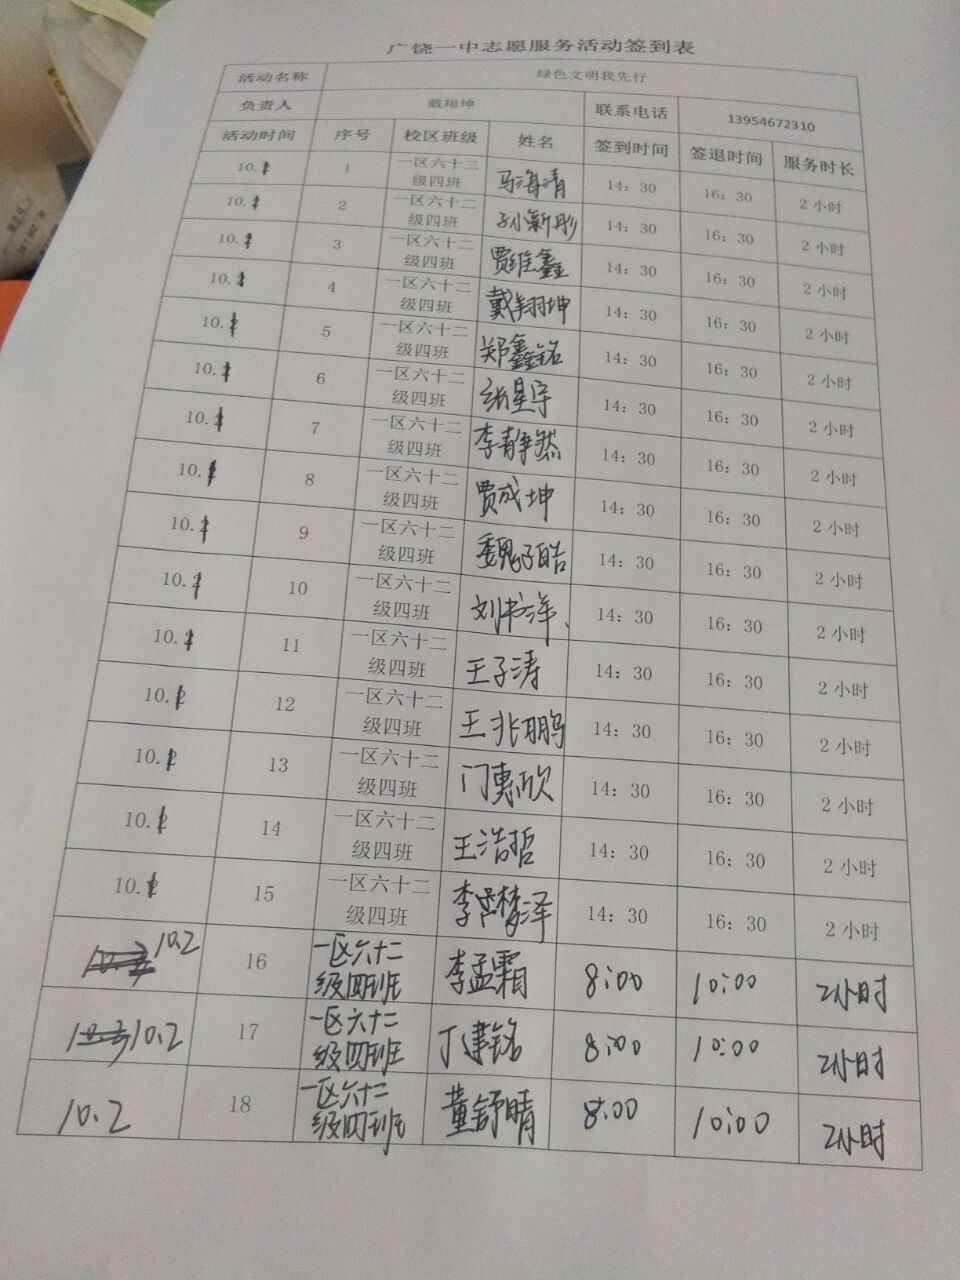 广饶一中志愿服务活动签到表
活动名称 绿色文明我先行
负责人 戴翔坤 联系电话 13954672310
活动时间 序号 校区班级 姓名 签到时间 签退时间 服务时长
10. 1 一区六十二级四班 马海清 14：30 16：30 2 小时
10. 2 一区六十二级四班 孙新彤 14：30 16：30 2 小时
10. 3 一区六十二级四班 贾维鑫 14：30 16：30 2 小时
10. 4 一区六十二级四班 戴翔坤 14：30 16：30 2 小时
10. 5 一区六十二级四班 郑鑫铭 14：30 16：30 2 小时
10. 6 一区六十二级四班 张星宇 14：30 16：30 2 小时
10. 7 一区六十二级四班 李静然 14：30 16：30 2 小时
10. 8 一区六十二级四班 贾成坤 14：30 16：30 2 小时
10. 9 一区六十二级四班 魏子皓 14：30 16：30 2 小时
10. 10 一区六十二级四班 刘书洋 14：30 16：30 2 小时
10. 11 一区六十二级四班 王子涛 14：30 16：30 2 小时
10. 12 一区六十二级四班 王兆鹏 14：30 16：30 2 小时
10. 13 一区六十二级四班 门惠欣 14：30 16：30 2 小时
10. 14 一区六十二级四班 王浩哲 14：30 16：30 2 小时
10. 15 一区六十二级四班 14：30 16：30 2 小时
10.2 16 一区六十二级四班 李孟霜 8:00 10:00 2小时
10.2 17 一区六十二级四班 丁建铭 8:00 10:00 2小时
10.2 18 一区六十二级四班 董舒晴 8:00 10:00 2小时